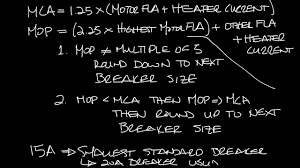 MCA = 1.25 × (MOTOR FLA + HEATER CURRENT)
MOP = (2.25 × HIGHEST MOTOR FLA) + OTHER FLA
+ HEATER
CURRENT
1. MOP ≠ MULTIPLE OF 5
ROUND DOWN TO NEXT
BREAKER SIZE
2. MOP < MCA THEN MOP => MCA
THEN ROUND UP TO NEXT
BREAKER SIZE
15A => SMALLEST STANDARD BREAKER
↳ 20A BREAKER